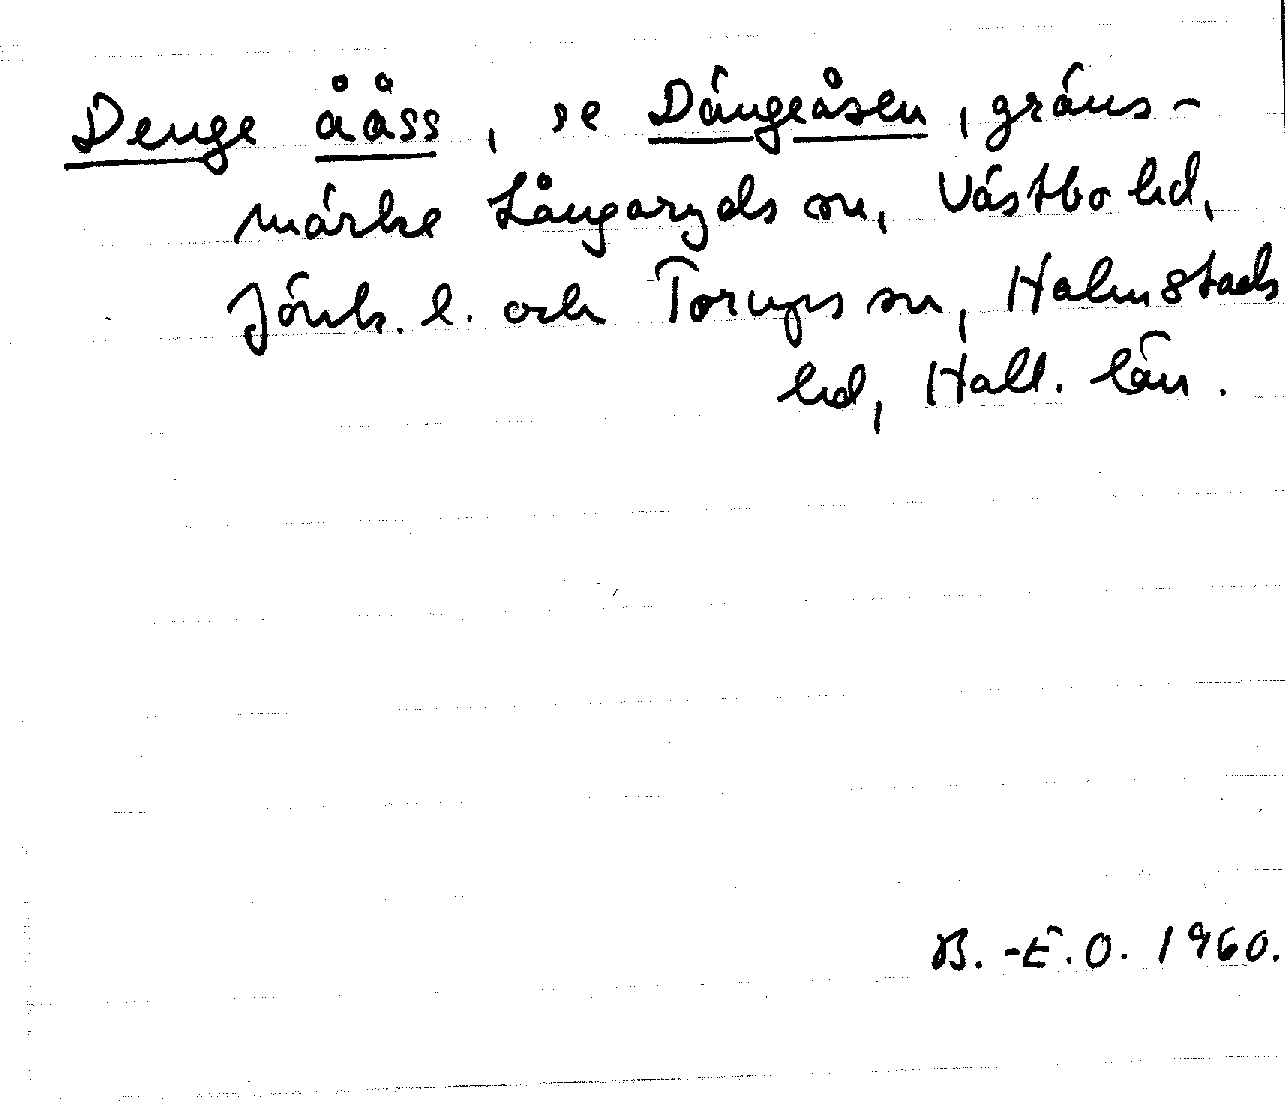 Denge ååss, se Dängeåsen, gräns-
märke Långaryds sn, Västbo hd,
Jönk. l. och Torups sn, Halmstads
hd, Hall. län.
B.-E.O. 1960.